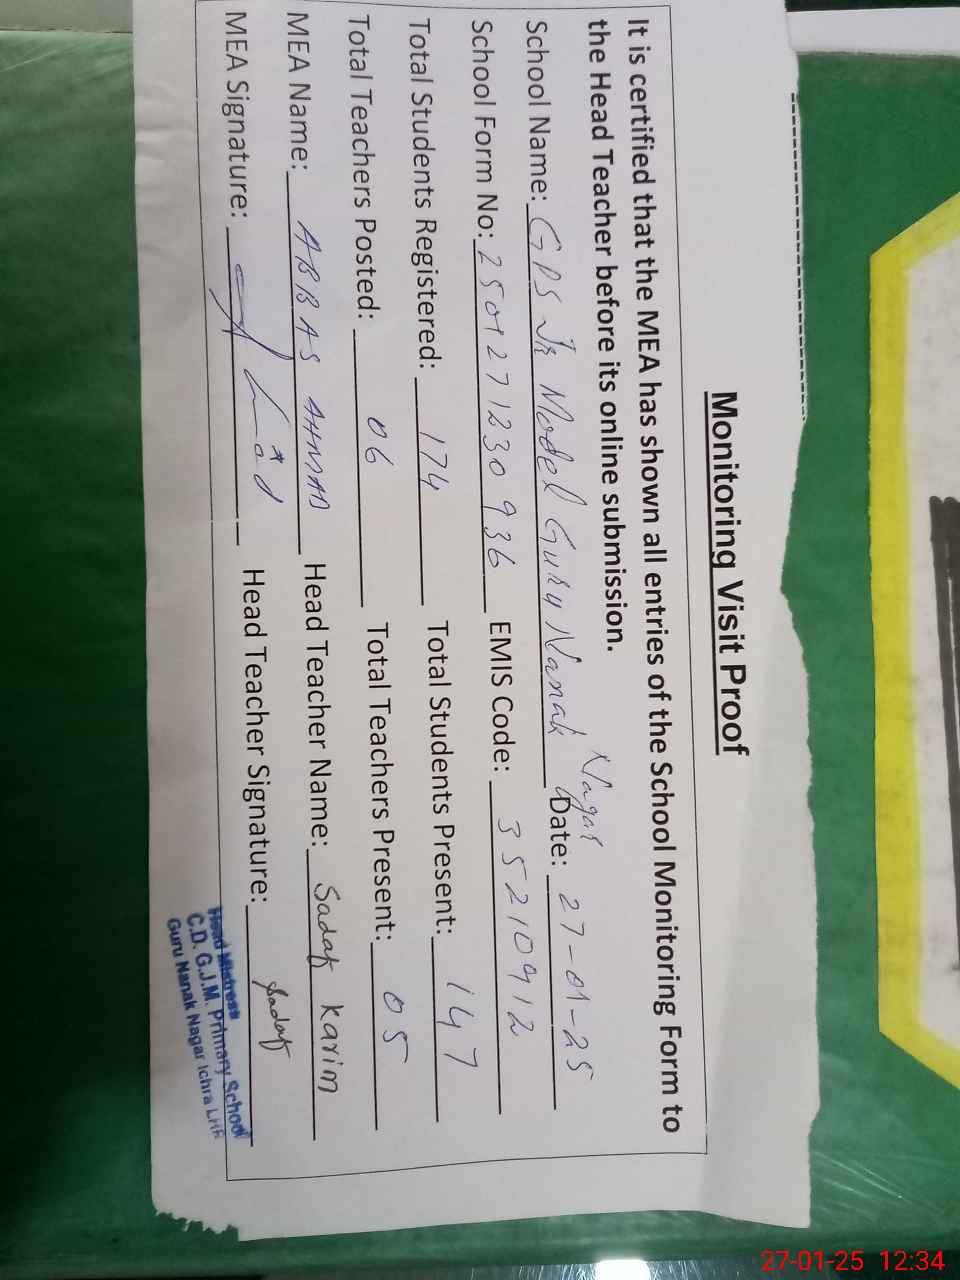 Monitoring Visit Proof
It is certified that the MEA has shown all entries of the School Monitoring Form to
the Head Teacher before its online submission.
School Name: GPS Jr Model Guru Nanak Nagar Date: 27-01-25
School Form No: 2501271230936 EMIS Code: 35210912
Total Students Registered: 174 Total Students Present: 147
Total Teachers Posted: 06 Total Teachers Present: 05
MEA Name: ABBAS AHMAD Head Teacher Name: Sadaf Karim
MEA Signature: Head Teacher Signature: Sadaf
Head Mistress
C.D. G.J.M. Primary School
Guru Nanak Nagar Ichra LHR
27-01-25 12:34